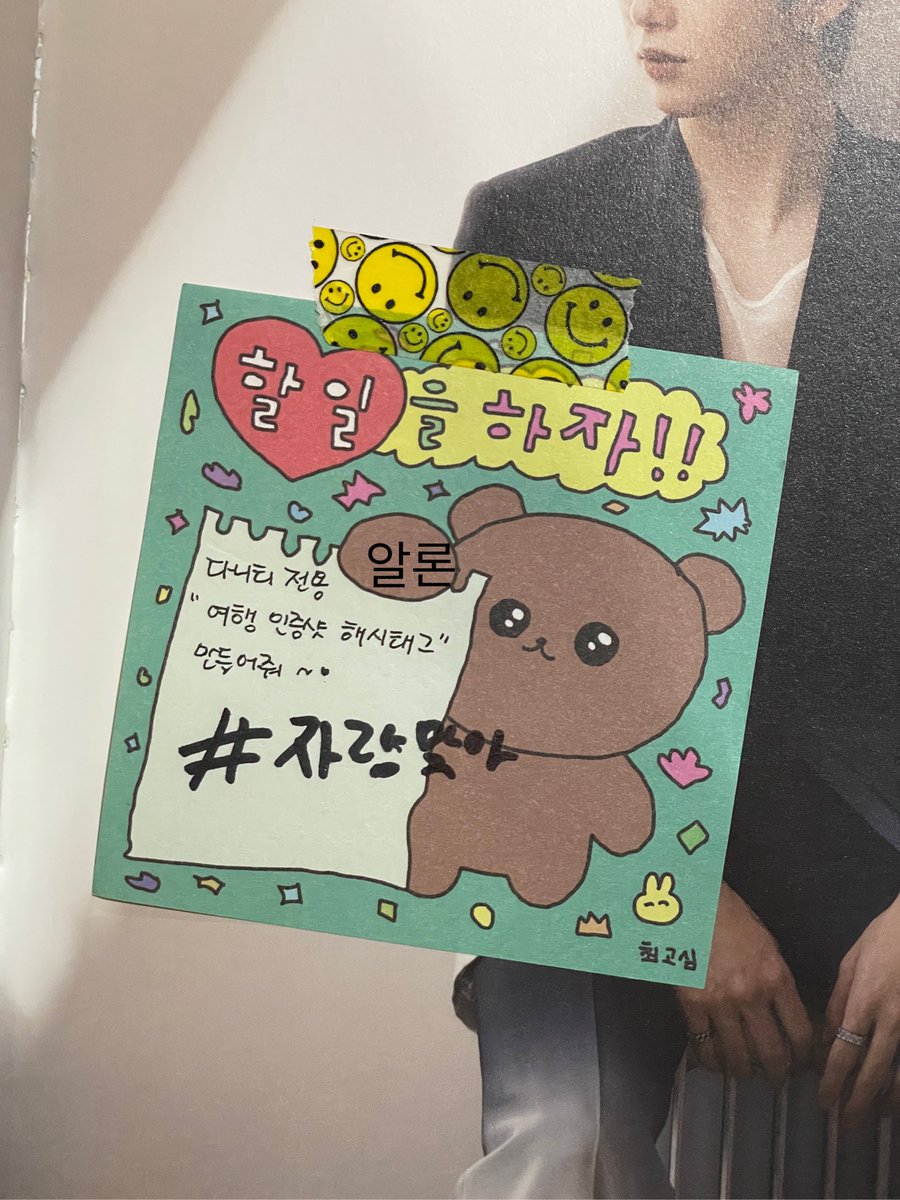 할 일을 하자!!
알론
다니티 전용
"여행 인증샷 해시태그"
만들어줘 ~♥
#자랑맞아
최고심